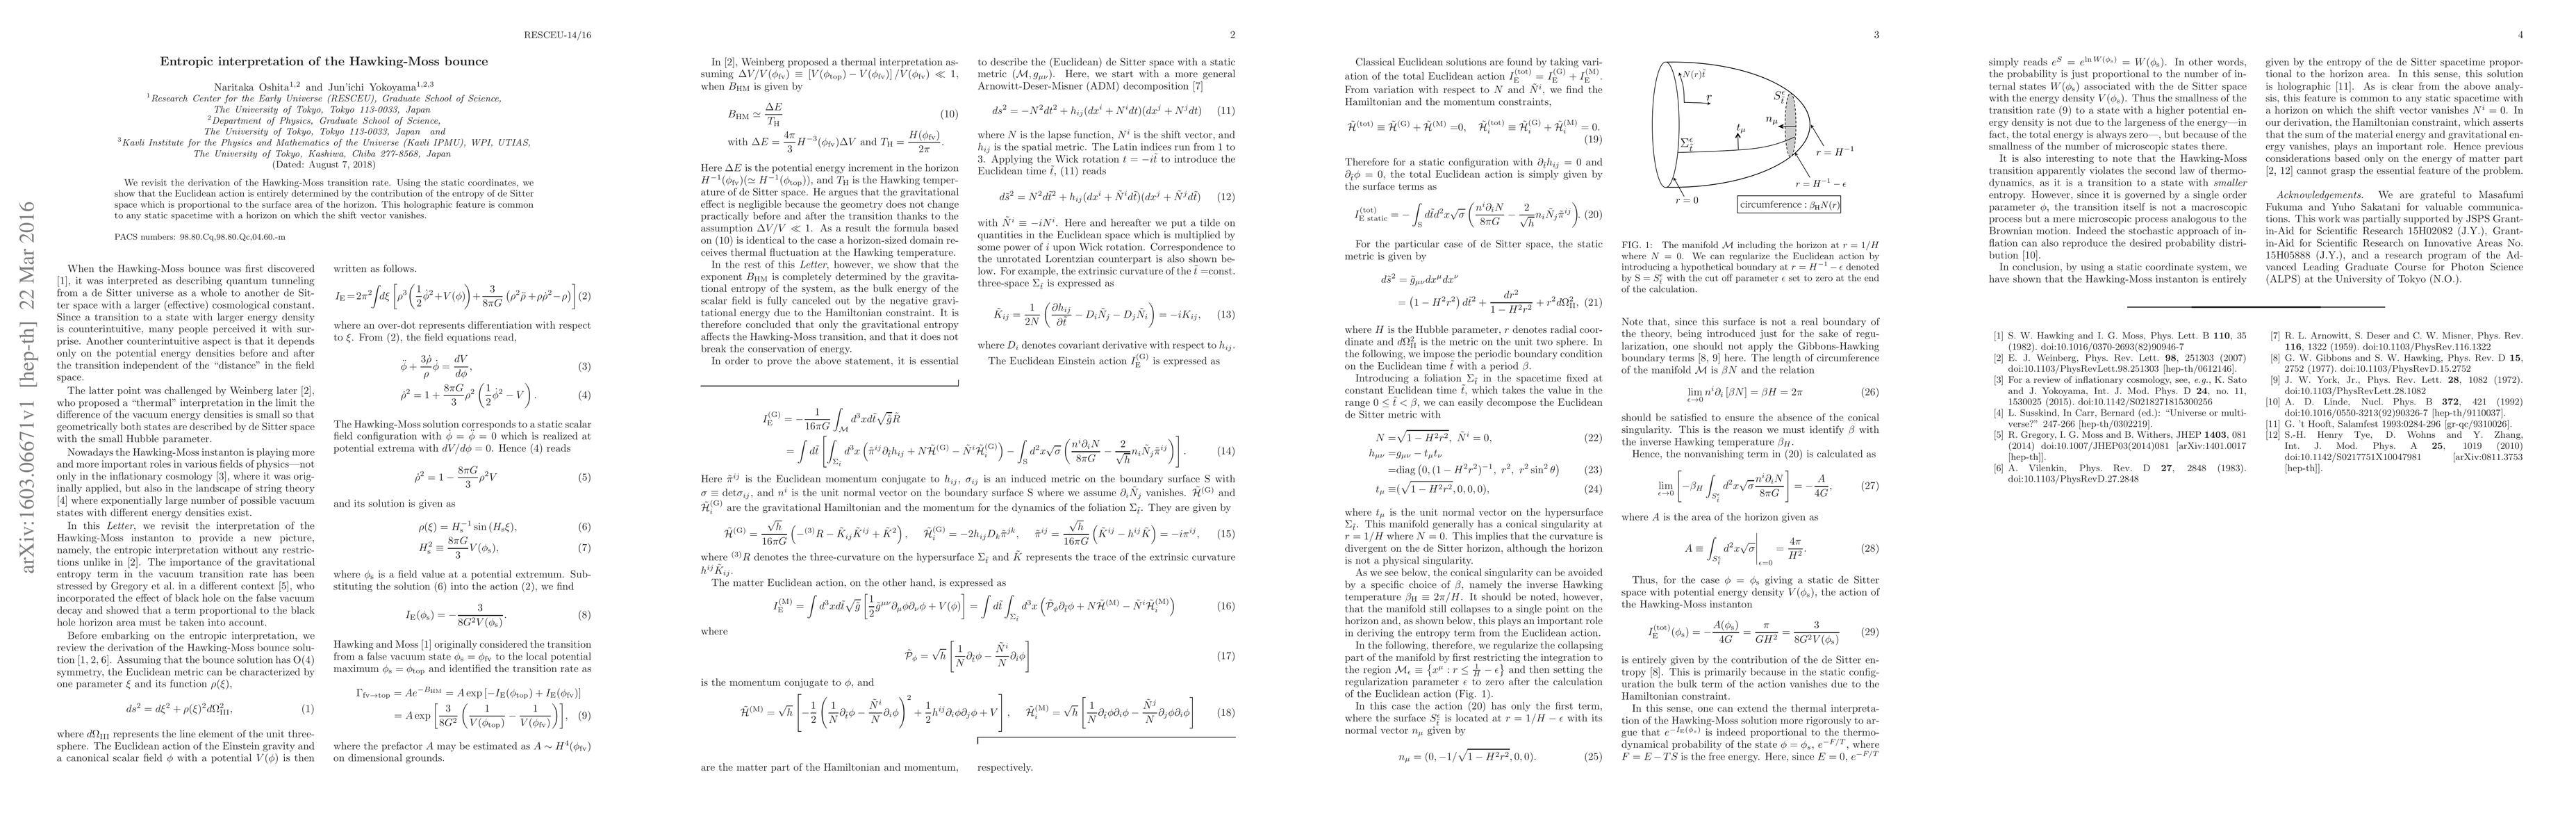 RESCEU-14/16
Entropic interpretation of the Hawking-Moss bounce
Naritaka Oshita1,2 and Jun'ichi Yokoyama1,2,3
1Research Center for the Early Universe (RESCEU), Graduate School of Science,
The University of Tokyo, Tokyo 113-0033, Japan
2Department of Physics, Graduate School of Science,
The University of Tokyo, Tokyo 113-0033, Japan and
3Kavli Institute for the Physics and Mathematics of the Universe (Kavli IPMU), WPI, UTIAS,
The University of Tokyo, Kashiwa, Chiba 277-8568, Japan
(Dated: August 7, 2018)
We revisit the derivation of the Hawking-Moss transition rate. Using the static coordinates, we
show that the Euclidean action is entirely determined by the contribution of the entropy of de Sitter
space which is proportional to the surface area of the horizon. This holographic feature is common
to any static spacetime with a horizon on which the shift vector vanishes.
PACS numbers: 98.80.Cq,98.80.Qc,04.60.-m
arXiv:1603.06671v1 [hep-th] 22 Mar 2016
When the Hawking-Moss bounce was first discovered
[1], it was interpreted as describing quantum tunneling
from a de Sitter universe as a whole to another de Sit-
ter space with a larger (effective) cosmological constant.
Since a transition to a state with larger energy density
is counterintuitive, many people perceived it with sur-
prise. Another counterintuitive aspect is that it depends
only on the potential energy densities before and after
the transition independent of the "distance" in the field
space.
The latter point was challenged by Weinberg later [2],
who proposed a "thermal" interpretation in the limit the
difference of the vacuum energy densities is small so that
geometrically both states are described by de Sitter space
with the small Hubble parameter.
Nowadays the Hawking-Moss instanton is playing more
and more important roles in various fields of physics—not
only in the inflationary cosmology [3], where it was orig-
inally applied, but also in the landscape of string theory
[4] where exponentially large number of possible vacuum
states with different energy densities exist.
In this Letter, we revisit the interpretation of the
Hawking-Moss instanton to provide a new picture,
namely, the entropic interpretation without any restric-
tions unlike in [2]. The importance of the gravitational
entropy term in the vacuum transition rate has been
stressed by Gregory et al. in a different context [5], who
incorporated the effect of black hole on the false vacuum
decay and showed that a term proportional to the black
hole horizon area must be taken into account.
Before embarking on the entropic interpretation, we
review the derivation of the Hawking-Moss bounce solu-
tion [1, 2, 6]. Assuming that the bounce solution has O(4)
symmetry, the Euclidean metric can be characterized by
one parameter ξ and its function ρ(ξ),
ds² = dξ² + ρ(ξ)²dΩ²III, (1)
where dΩIII represents the line element of the unit three-
sphere. The Euclidean action of the Einstein gravity and
a canonical scalar field ϕ with a potential V(ϕ) is then
written as follows.
IE=2π²∫dξ [ρ³(1/2 ϕ̇²+V(ϕ))+3/8πG (ρ²ρ̈+ρρ̇²−ρ)](2)
where an over-dot represents differentiation with respect
to ξ. From (2), the field equations read,
ϕ̈ + 3ρ̇/ρ ϕ̇ = dV/dϕ, (3)
ρ̇² = 1 + 8πG/3 ρ² (1/2 ϕ̇² − V). (4)
The Hawking-Moss solution corresponds to a static scalar
field configuration with ϕ̇ = ϕ̈ = 0 which is realized at
potential extrema with dV/dϕ = 0. Hence (4) reads
ρ̇² = 1 − 8πG/3 ρ²V (5)
and its solution is given as
ρ(ξ) = Hs⁻¹ sin (Hsξ), (6)
Hs² ≡ 8πG/3 V(ϕs), (7)
where ϕs is a field value at a potential extremum. Sub-
stituting the solution (6) into the action (2), we find
IE(ϕs) = − 3/8G²V(ϕs). (8)
Hawking and Moss [1] originally considered the transition
from a false vacuum state ϕs = ϕfv to the local potential
maximum ϕs = ϕtop and identified the transition rate as
Γfv→top = Ae^−BHM = A exp [−IE(ϕtop) + IE(ϕfv)]
= A exp [3/8G² (1/V(ϕtop) − 1/V(ϕfv))], (9)
where the prefactor A may be estimated as A ∼ H⁴(ϕfv)
on dimensional grounds.
2
In [2], Weinberg proposed a thermal interpretation as-
suming ΔV/V(ϕfv) ≡ [V(ϕtop) − V(ϕfv)] /V(ϕfv) ≪ 1,
when BHM is given by
BHM ≃ ΔE/TH (10)
with ΔE = 4π/3 H⁻³(ϕfv)ΔV and TH = H(ϕfv)/2π.
Here ΔE is the potential energy increment in the horizon
H⁻¹(ϕfv)(≃ H⁻¹(ϕtop)), and TH is the Hawking temper-
ature of de Sitter space. He argues that the gravitational
effect is negligible because the geometry does not change
practically before and after the transition thanks to the
assumption ΔV/V ≪ 1. As a result the formula based
on (10) is identical to the case a horizon-sized domain re-
ceives thermal fluctuation at the Hawking temperature.
In the rest of this Letter, however, we show that the
exponent BHM is completely determined by the gravita-
tional entropy of the system, as the bulk energy of the
scalar field is fully canceled out by the negative gravi-
tational energy due to the Hamiltonian constraint. It is
therefore concluded that only the gravitational entropy
affects the Hawking-Moss transition, and that it does not
break the conservation of energy.
In order to prove the above statement, it is essential
to describe the (Euclidean) de Sitter space with a static
metric (M, gμν). Here, we start with a more general
Arnowitt-Deser-Misner (ADM) decomposition [7]
ds² = −N²dt² + hij(dxⁱ + Nⁱdt)(dxʲ + Nʲdt) (11)
where N is the lapse function, Nⁱ is the shift vector, and
hij is the spatial metric. The Latin indices run from 1 to
3. Applying the Wick rotation t = −it̃ to introduce the
Euclidean time t̃, (11) reads
ds̃² = N²dt̃² + hij(dxⁱ + Ñⁱdt̃)(dxʲ + Ñʲdt̃) (12)
with Ñⁱ ≡ −iNⁱ. Here and hereafter we put a tilde on
quantities in the Euclidean space which is multiplied by
some power of i upon Wick rotation. Correspondence to
the unrotated Lorentzian counterpart is also shown be-
low. For example, the extrinsic curvature of the t̃ =const.
three-space Σt̃ is expressed as
K̃ij = 1/2N (∂hij/∂t̃ − DiÑj − DjÑi) = −iKij, (13)
where Di denotes covariant derivative with respect to hij.
The Euclidean Einstein action IE(G) is expressed as
IE(G) = − 1/16πG ∫M d³xdt̃√g̃R̃
= ∫ dt̃ [∫Σt̃ d³x (π̃ⁱʲ∂t̃hij + NH̃(G) − ÑⁱH̃i(G)) − ∫S d²x√σ (nⁱ∂iN/8πG − 2/√h niÑjπ̃ⁱʲ)]. (14)
Here π̃ⁱʲ is the Euclidean momentum conjugate to hij, σij is an induced metric on the boundary surface S with
σ ≡ detσij, and nⁱ is the unit normal vector on the boundary surface S where we assume ∂iÑj vanishes. H̃(G) and
H̃i(G) are the gravitational Hamiltonian and the momentum for the dynamics of the foliation Σt̃. They are given by
H̃(G) = √h/16πG (−(3)R − K̃ijK̃ⁱʲ + K̃²), H̃i(G) = −2hijDkπ̃ʲᵏ, π̃ⁱʲ = √h/16πG (K̃ⁱʲ − hⁱʲK̃) = −iπⁱʲ, (15)
where (3)R denotes the three-curvature on the hypersurface Σt̃ and K̃ represents the trace of the extrinsic curvature
hⁱʲK̃ij.
The matter Euclidean action, on the other hand, is expressed as
IE(M) = ∫ d³xdt̃√g̃ [1/2 g̃^μν∂μϕ∂νϕ + V(ϕ)] = ∫ dt̃ ∫Σt̃ d³x (P̃ϕ∂t̃ϕ + NH̃(M) − ÑⁱH̃i(M)) (16)
where
P̃ϕ = √h [1/N ∂t̃ϕ − Ñⁱ/N ∂iϕ] (17)
is the momentum conjugate to ϕ, and
H̃(M) = √h [−1/2 (1/N ∂t̃ϕ − Ñⁱ/N ∂iϕ)² + 1/2 hⁱʲ∂iϕ∂jϕ + V], H̃i(M) = √h [1/N ∂t̃ϕ∂iϕ − Ñʲ/N ∂jϕ∂iϕ] (18)
are the matter part of the Hamiltonian and momentum,
respectively.
3
Classical Euclidean solutions are found by taking vari-
ation of the total Euclidean action IE(tot) = IE(G) + IE(M).
From variation with respect to N and Ñⁱ, we find the
Hamiltonian and the momentum constraints,
H̃(tot) ≡ H̃(G) + H̃(M) =0, H̃i(tot) ≡ H̃i(G) + H̃i(M) = 0.
(19)
Therefore for a static configuration with ∂t̃hij = 0 and
∂t̃ϕ = 0, the total Euclidean action is simply given by
the surface terms as
IE static(tot) = − ∫S dt̃d²x√σ (nⁱ∂iN/8πG − 2/√h niÑjπ̃ⁱʲ). (20)
For the particular case of de Sitter space, the static
metric is given by
ds̃² = g̃μνdx^μdx^ν
= (1 − H²r²) dt̃² + dr²/1 − H²r² + r²dΩ²II, (21)
where H is the Hubble parameter, r denotes radial coor-
dinate and dΩ²II is the metric on the unit two sphere. In
the following, we impose the periodic boundary condition
on the Euclidean time t̃ with a period β.
Introducing a foliation Σt̃ in the spacetime fixed at
constant Euclidean time t̃, which takes the value in the
range 0 ≤ t̃ < β, we can easily decompose the Euclidean
de Sitter metric with
N =√1 − H²r², Ñⁱ = 0, (22)
hμν =gμν − tμtν
=diag (0, (1 − H²r²)⁻¹, r², r² sin² θ) (23)
tμ ≡(√1 − H²r², 0, 0, 0), (24)
where tμ is the unit normal vector on the hypersurface
Σt̃. This manifold generally has a conical singularity at
r = 1/H where N = 0. This implies that the curvature is
divergent on the de Sitter horizon, although the horizon
is not a physical singularity.
As we see below, the conical singularity can be avoided
by a specific choice of β, namely the inverse Hawking
temperature βH ≡ 2π/H. It should be noted, however,
that the manifold still collapses to a single point on the
horizon and, as shown below, this plays an important role
in deriving the entropy term from the Euclidean action.
In the following, therefore, we regularize the collapsing
part of the manifold by first restricting the integration to
the region Mϵ ≡ {x^μ : r ≤ 1/H − ϵ} and then setting the
regularization parameter ϵ to zero after the calculation
of the Euclidean action (Fig. 1).
In this case the action (20) has only the first term,
where the surface St̃^ϵ is located at r = 1/H − ϵ with its
normal vector nμ given by
nμ = (0, −1/√1 − H²r², 0, 0). (25)
N(r)t̃
r
St̃^ϵ
nμ
tμ
Σt̃^ϵ
r = H⁻¹
r = H⁻¹ − ϵ
r = 0
circumference : βHN(r)
FIG. 1: The manifold M including the horizon at r = 1/H
where N = 0. We can regularize the Euclidean action by
introducing a hypothetical boundary at r = H⁻¹ − ϵ denoted
by S = St̃^ϵ with the cut off parameter ϵ set to zero at the end
of the calculation.
Note that, since this surface is not a real boundary of
the theory, being introduced just for the sake of regu-
larization, one should not apply the Gibbons-Hawking
boundary terms [8, 9] here. The length of circumference
of the manifold M is βN and the relation
lim ϵ→0 nⁱ∂i [βN] = βH = 2π (26)
should be satisfied to ensure the absence of the conical
singularity. This is the reason we must identify β with
the inverse Hawking temperature βH.
Hence, the nonvanishing term in (20) is calculated as
lim ϵ→0 [−βH ∫St̃^ϵ d²x√σ nⁱ∂iN/8πG] = − A/4G, (27)
where A is the area of the horizon given as
A ≡ ∫St̃^ϵ d²x√σ|ϵ=0 = 4π/H². (28)
Thus, for the case ϕ = ϕs giving a static de Sitter
space with potential energy density V(ϕs), the action of
the Hawking-Moss instanton
IE(tot)(ϕs) = − A(ϕs)/4G = π/GH² = 3/8G²V(ϕs) (29)
is entirely given by the contribution of the de Sitter en-
tropy [8]. This is primarily because in the static config-
uration the bulk term of the action vanishes due to the
Hamiltonian constraint.
In this sense, one can extend the thermal interpreta-
tion of the Hawking-Moss solution more rigorously to ar-
gue that e^−IE(ϕs) is indeed proportional to the thermo-
dynamical probability of the state ϕ = ϕs, e^−F/T, where
F = E − TS is the free energy. Here, since E = 0, e^−F/T
4
simply reads e^S = e^ln W(ϕs) = W(ϕs). In other words,
the probability is just proportional to the number of in-
ternal states W(ϕs) associated with the de Sitter space
with the energy density V(ϕs). Thus the smallness of the
transition rate (9) to a state with a higher potential en-
ergy density is not due to the largeness of the energy—in
fact, the total energy is always zero—, but because of the
smallness of the number of microscopic states there.
It is also interesting to note that the Hawking-Moss
transition apparently violates the second law of thermo-
dynamics, as it is a transition to a state with smaller
entropy. However, since it is governed by a single order
parameter ϕ, the transition itself is not a macroscopic
process but a mere microscopic process analogous to the
Brownian motion. Indeed the stochastic approach of in-
flation can also reproduce the desired probability distri-
bution [10].
In conclusion, by using a static coordinate system, we
have shown that the Hawking-Moss instanton is entirely
given by the entropy of the de Sitter spacetime propor-
tional to the horizon area. In this sense, this solution
is holographic [11]. As is clear from the above analy-
sis, this feature is common to any static spacetime with
a horizon on which the shift vector vanishes Nⁱ = 0. In
our derivation, the Hamiltonian constraint, which asserts
that the sum of the material energy and gravitational en-
ergy vanishes, plays an important role. Hence previous
considerations based only on the energy of matter part
[2, 12] cannot grasp the essential feature of the problem.
Acknowledgements. We are grateful to Masafumi
Fukuma and Yuho Sakatani for valuable communica-
tions. This work was partially supported by JSPS Grant-
in-Aid for Scientific Research 15H02082 (J.Y.), Grant-
in-Aid for Scientific Research on Innovative Areas No.
15H05888 (J.Y.), and a research program of the Ad-
vanced Leading Graduate Course for Photon Science
(ALPS) at the University of Tokyo (N.O.).
[1] S. W. Hawking and I. G. Moss, Phys. Lett. B 110, 35
(1982). doi:10.1016/0370-2693(82)90946-7
[2] E. J. Weinberg, Phys. Rev. Lett. 98, 251303 (2007)
doi:10.1103/PhysRevLett.98.251303 [hep-th/0612146].
[3] For a review of inflationary cosmology, see, e.g., K. Sato
and J. Yokoyama, Int. J. Mod. Phys. D 24, no. 11,
1530025 (2015). doi:10.1142/S0218271815300256
[4] L. Susskind, In Carr, Bernard (ed.): "Universe or multi-
verse?" 247-266 [hep-th/0302219].
[5] R. Gregory, I. G. Moss and B. Withers, JHEP 1403, 081
(2014) doi:10.1007/JHEP03(2014)081 [arXiv:1401.0017
[hep-th]].
[6] A. Vilenkin, Phys. Rev. D 27, 2848 (1983).
doi:10.1103/PhysRevD.27.2848
[7] R. L. Arnowitt, S. Deser and C. W. Misner, Phys. Rev.
116, 1322 (1959). doi:10.1103/PhysRev.116.1322
[8] G. W. Gibbons and S. W. Hawking, Phys. Rev. D 15,
2752 (1977). doi:10.1103/PhysRevD.15.2752
[9] J. W. York, Jr., Phys. Rev. Lett. 28, 1082 (1972).
doi:10.1103/PhysRevLett.28.1082
[10] A. D. Linde, Nucl. Phys. B 372, 421 (1992)
doi:10.1016/0550-3213(92)90326-7 [hep-th/9110037].
[11] G. 't Hooft, Salamfest 1993:0284-296 [gr-qc/9310026].
[12] S.-H. Henry Tye, D. Wohns and Y. Zhang,
Int. J. Mod. Phys. A 25, 1019 (2010)
doi:10.1142/S0217751X10047981 [arXiv:0811.3753
[hep-th]].